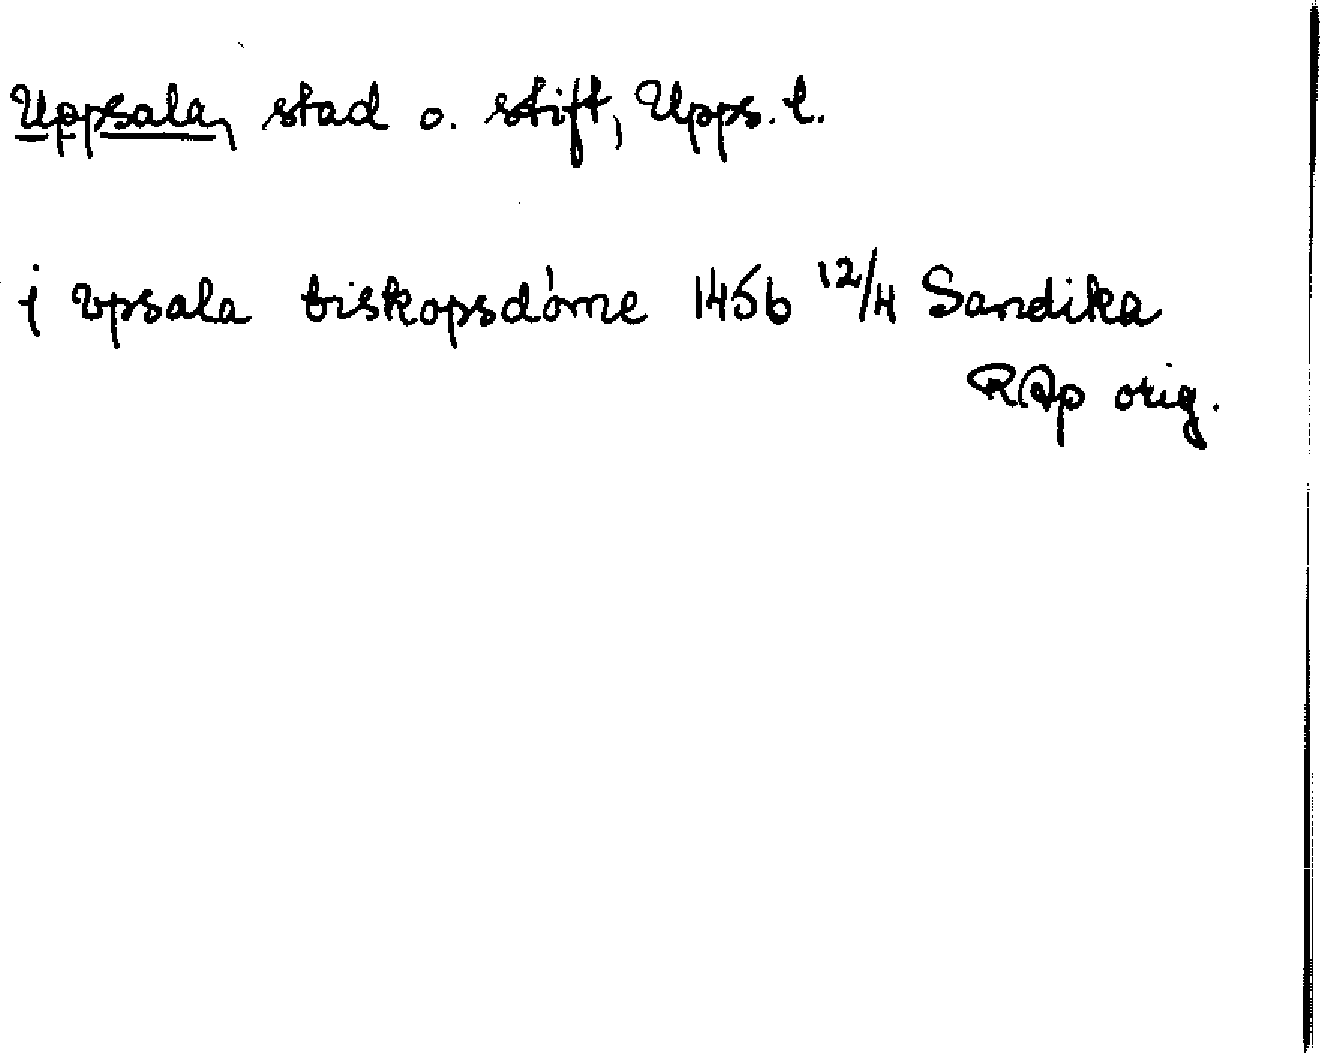 Uppsala, stad o. stift, Upps. l.
j vpsala biskopsdóme 1456 12/4 Sandika
RAp orig.